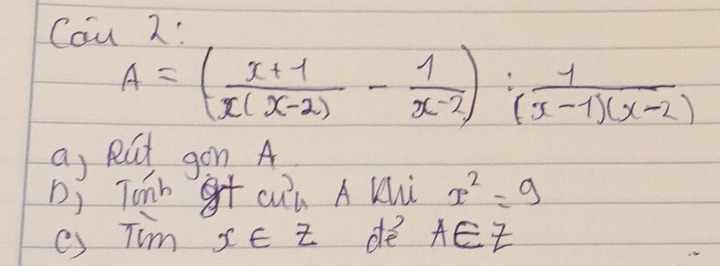 Câu 2:
A = ( \frac{x+1}{x(x-2)} - \frac{1}{x-2} ) : \frac{1}{(x-1)(x-2)}
a, Rút gọn A
b, Tính gt của A khi x² = 9
c, Tìm x ∈ Z để A ∈ Z